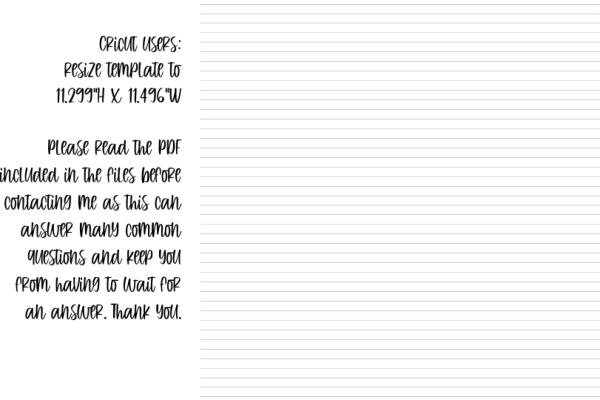 Cricut Users:
Resize template to
11.299"H X 11.496"W
Please read the PDF
included in the files before
contacting me as this can
answer many common
questions and keep you
from having to wait for
an answer. Thank you.